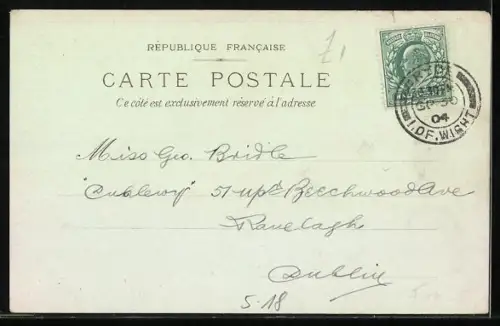 RÉPUBLIQUE FRANÇAISE
CARTE POSTALE
Ce côté est exclusivement réservé à l'adresse
SP 30
04
I.OF.WIGHT
Miss Geo. Bridle
51 Beechwood Ave
Ranelagh
Dublin
5-18